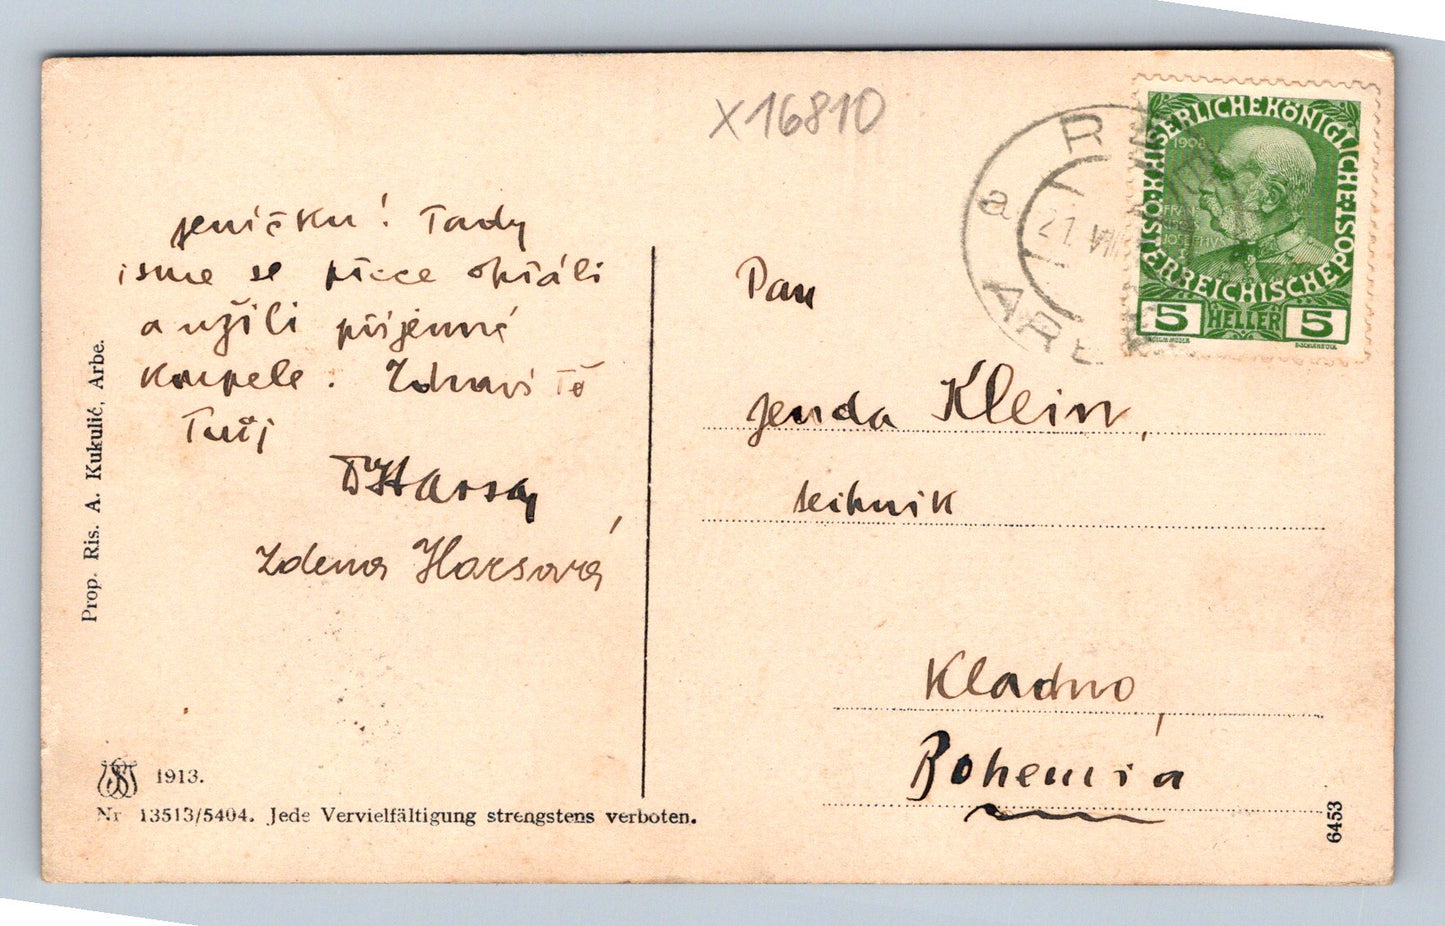 X16810
Jeníčku! Tady
jsme se přece opiáli
a užili příjemné
koupele. Zdraví Tě
Tvůj
Zdena Harsová
Pan
Jenda Klein,
technik
Kladno,
Bohemia
R
a
21. VIII
ARBE
KAISERLICHEKÖNIGLICHE
ÖSTERREICHISCHE POST
1908
5 HELLER 5
Prop. Ris. A. Kukulić, Arbe.
1913.
Nr 13513/5404. Jede Vervielfältigung strengstens verboten.
6453